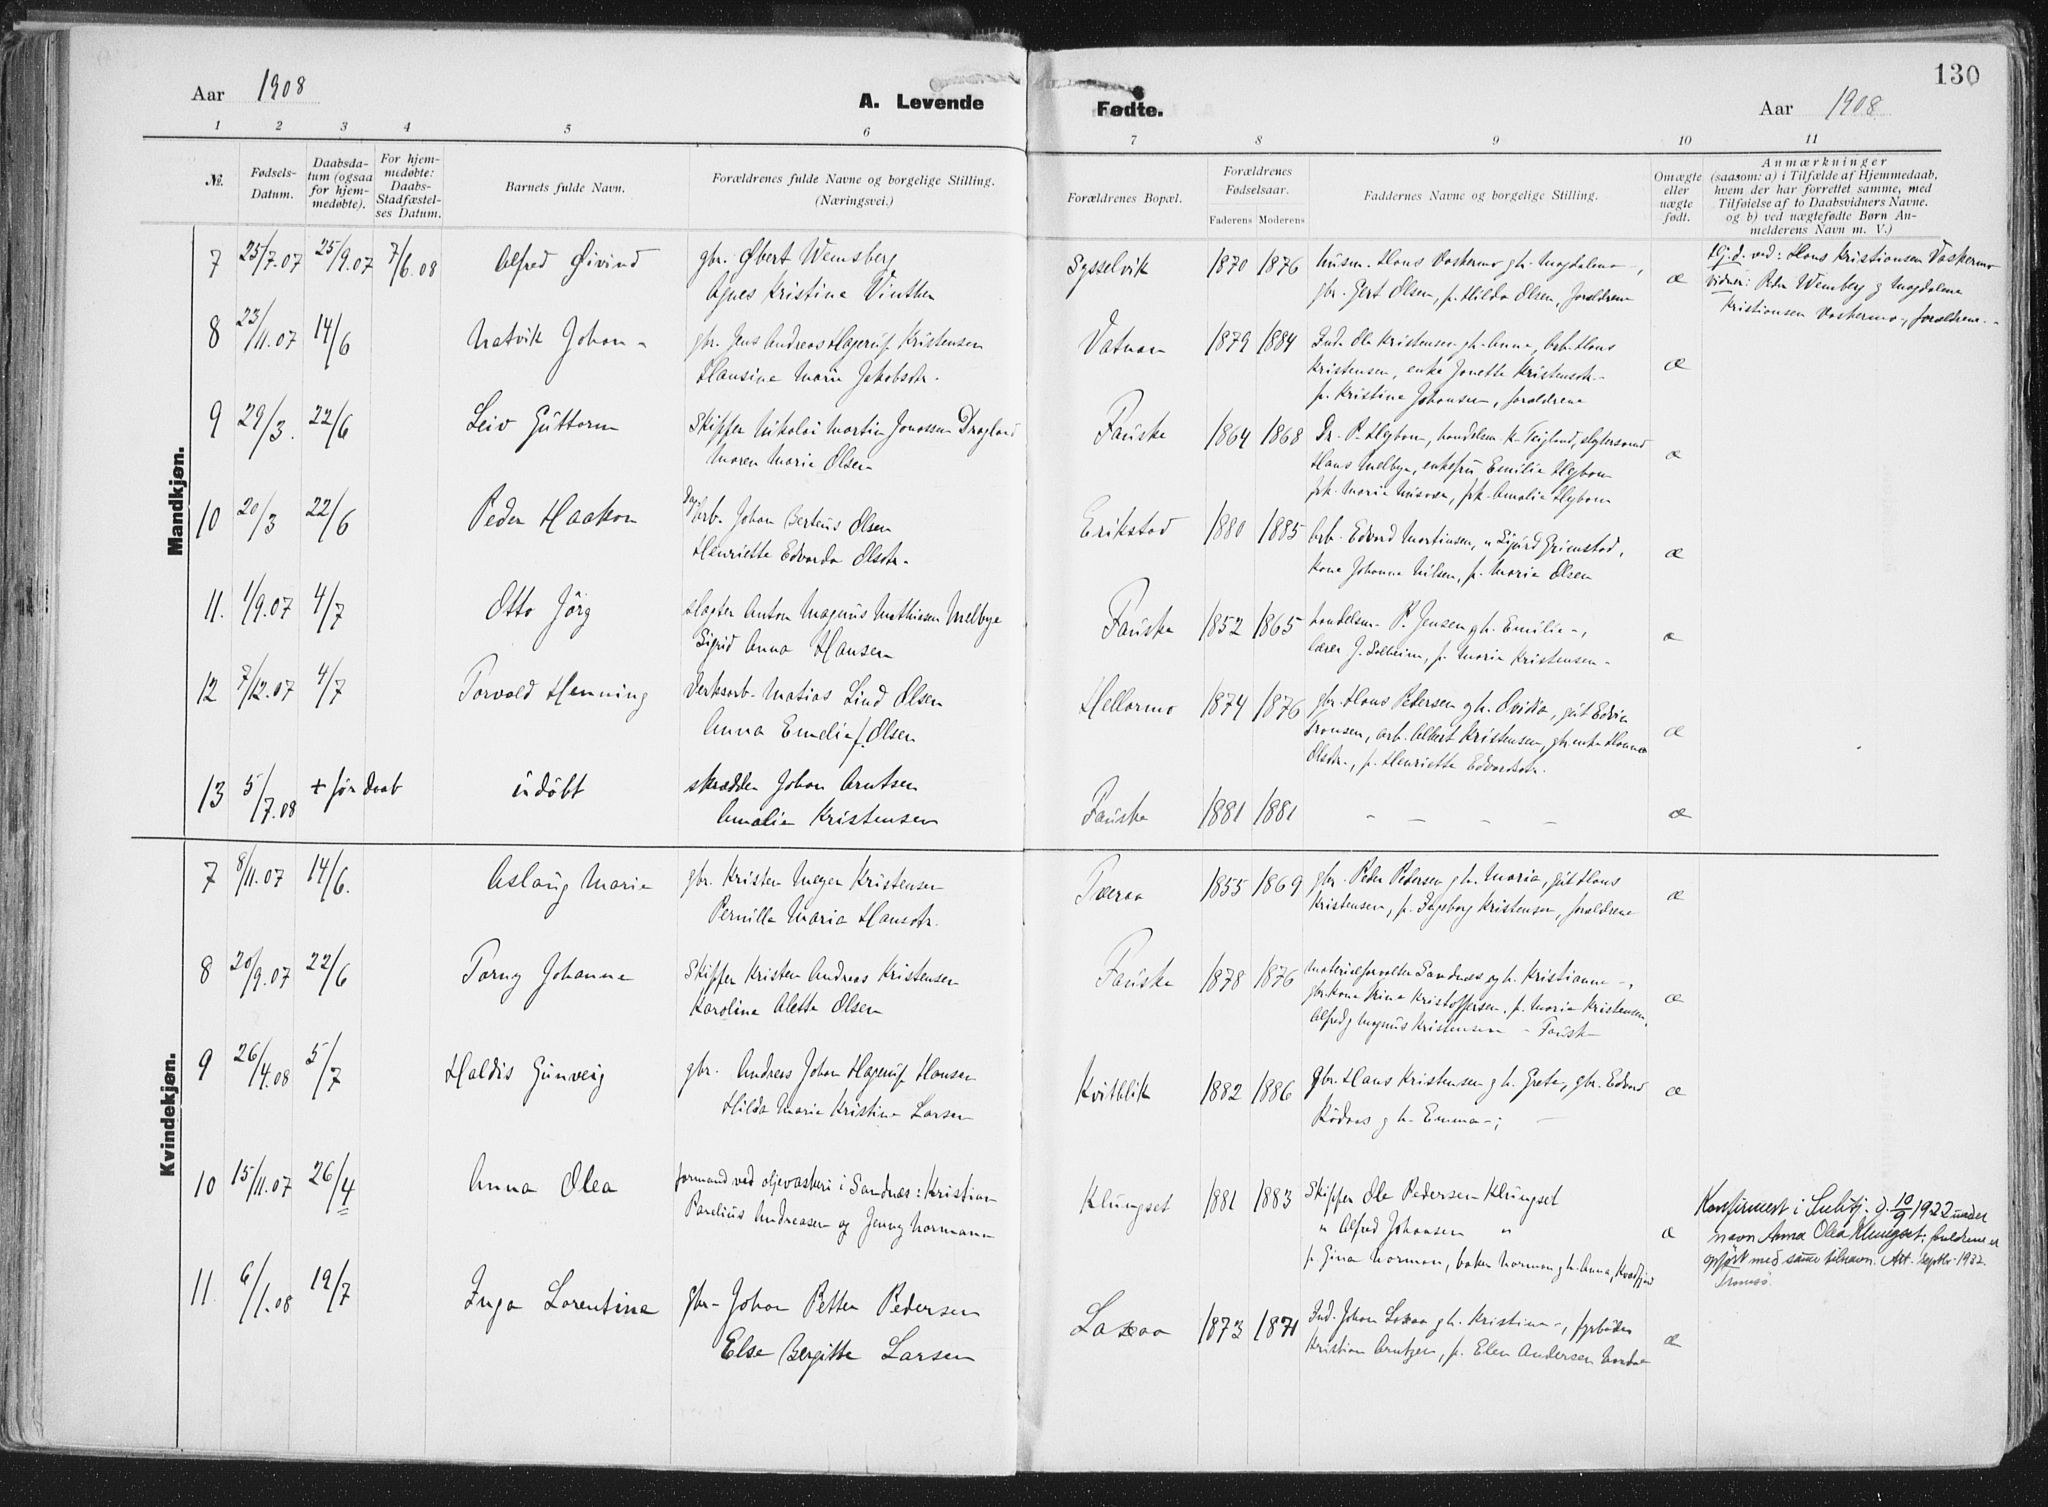 130
Aar 1908
A. Levende Fødte.
Aar 1908
1 2 3 4 5 6 7 8 9 10 11
№.
Fødsels-
Datum.
Daabsda-
tum (ogsaa
for hjem-
medøbte).
For hjem-
medøbte:
Daabs-
Stadfæstel-
ses Datum.
Barnets fulde Navn.
Forældrenes fulde Navne og borgelige Stilling.
(Næringsvei.)
Forældrenes Bopæl.
Forældrenes
Fødselsaar.
Faderens Moderens
Faddernes Navne og borgelige Stilling.
Om ægte
eller
uægte
født.
Anmærkninger
(saasom: a) i Tilfælde af Hjemmedaab,
hvem der har forrettet samme, med
Tilføielse af to Daabsvidners Navne.
og b) ved uægtefødte Børn An-
melderens Navn m. V.)
Mandkjøn.
7 25/7.07 25/9.07 7/6.08 Alfred Øivind gbr. Øbert Wemsberg
Agnes Kristine Vinther
Sysselvik 1870 1876 husm. Hans Vaskermo gh. Magdalena -,
gbr. Gert Olsen, p. Hilda Olsen, forældrene
æ
Hj.d. ved: Hans Kristiansen Vaskermo
vidner: Peder Wemberg g Magdalene
Kristiansen Vaskermo, forældrene. -
8 23/11.07 14/6 Natvik Johan - gbr. Jens Andreas Hagerup Kristensen
Hansine Marie Jakobsdtr.
Vatnan 1879 1884 Ind. Ole Kristensen gh. Anna, Arb. Hans
Kristensen, enke Jonette Kristensdtr -
p. Kristine Johansen, forældrene
æ
9 29/3. 22/6 Leiv Guttorm Skipper Nikolai Martin Jonassen Dragland
Maren Marie Olsen
Fauske 1864 1868 Dr. P. Hybom, handelsm. K. Teigland,
Hans Melbye, enkefru Emilie Hybom
frk. Marie, frk. Amalie Hybom
æ
10 20/3 22/6 Peder Haakon Dagarb. Johan Berteus Olsen
Henriette Edvarda Olsdtr.
Erikstad 1880 1885 Arb. Edvard Martinsen, " Sigurd Grimstad,
Kone Johanna Nilsen, p. Marie Olsen
æ
11. 1/9.07 4/7 Otto Jörg Anton Magnus Mathiesen Melbye
Sigrid Anna Hansen
Fauske 1852 1865 handelsm. P. Jensen gh. Emilie -,
lærer J. Solheim, p. Marie Kristensen -
æ
12 7/12.07 4/7 Torvald Henning Verksarb. Matias Lind Olsen
Anna Emelie f. Olsen
Hellarmo 1874 1876 gbr. Hans Pedersen gh. Ovidia, gut Edvin
Tronsen, arb. Albert Kristensen, gbr.enke Hanna
Olsdtr -, p. Henriette Edvardsdtr.
æ
13 5/7.08 + før Daab udöbt skrædder Johan Arntsen
Amalie Kristensen
Fauske 1881 1881 - - - -
æ
Kvindekjøn.
7 8/11.07 14/6. Aslaug Marie gbr. Kristen Meyer Kristensen
Pernilla Maria Hansdtr.
Tveraa 1855 1869 gbr. Peder Pedersen gh. Maria, gut Hans
Kristensen, p. Ingeborg Kristensen, forældrene
æ
8 20/9.07 22/6 Torny Johanne Skipper Kristen Andreas Kristensen
Karolina Aletta Olsen
Fauske 1878 1876 Materialforvalter Sandnes og h. Kristianne -,
gbr.kone Trine Kristoffersen, p. Marie Kristensen,
Alfred g Magnus Kristensen - Fauske
æ
9 26/4.08 5/7 Haldis Gunveig gbr. Andreas Johan Hagerup Hansen
Hilda Marie Kristine Larsen
Kvitblik 1882 1886 Gbr. Hans Kristensen gh. Grete, gbr. Edvard
Rödaas g h. Emma -;
æ
10 15/11.07 26/4 Anna Olea formand ved oljevaskeri i Sandnæs: Kristian
Parelius Andreasen og Jenny Normann
Klungset 1881 1883 Skipper Ole Pedersen Klungset
" Alfred Johansen "
p. Gina Norman, baker Norman gh. Anna,
æ
Konfirmert i d. 10/9 1922 under
navn Anna Olea Klungset; forældrene er
opført med samme tilnavn. Att. septbr. 1922.
Tromsö.
11. 6/1.08 19/7 Inga Lorentine gbr - Johan Petter Pedersen
Else Bergitte Larsen
Laxaa 1873 1871 Ind. Johan Laxaa gh. Kristine -, fyrböder
Kristian Arntzen, p. Elen Andersen
æ